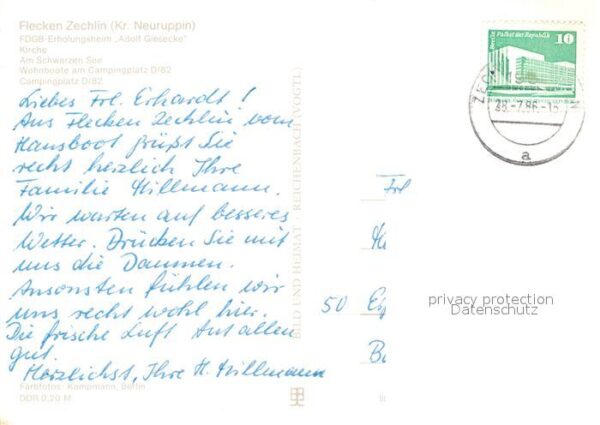 Flecken Zechlin (Kr. Neuruppin)
FDGB-Erholungsheim „Adolf Giesecke"
Kirche
Am Schwarzen See
Wohnboote am Campingplatz D/82
Campingplatz D/82
Liebes Frl. Erhardt!
Aus Flecken Zechlin vom
Hausboot grüßt Sie
recht herzlich Ihre
Familie Hillmann.
Wir warten auf besseres
Wetter. Drücken Sie mit
uns die Daumen.
Ansonsten fühlen wir
uns recht wohl hier.
Die frische Luft tut allen
gut.
Herzlichst, Ihre H. Hillmann
Farbfotos: Kampmann, Berlin
DDR 0,20 M
BILD UND HEIMAT · REICHENBACH (VOGTL)
Berlin Palast der Republik
10
-7.86-
a
Frl
50
privacy protection
Datenschutz